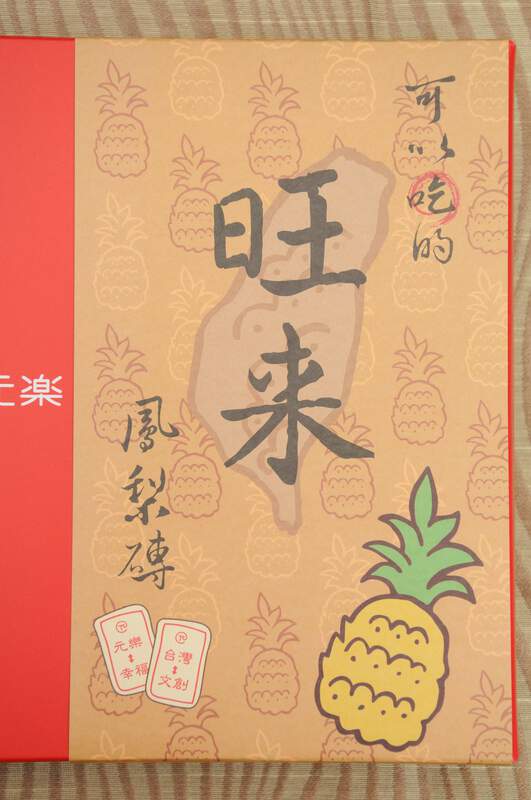 可以吃的
旺来
鳳梨磚
元樂
幸福
台灣
文創
元楽